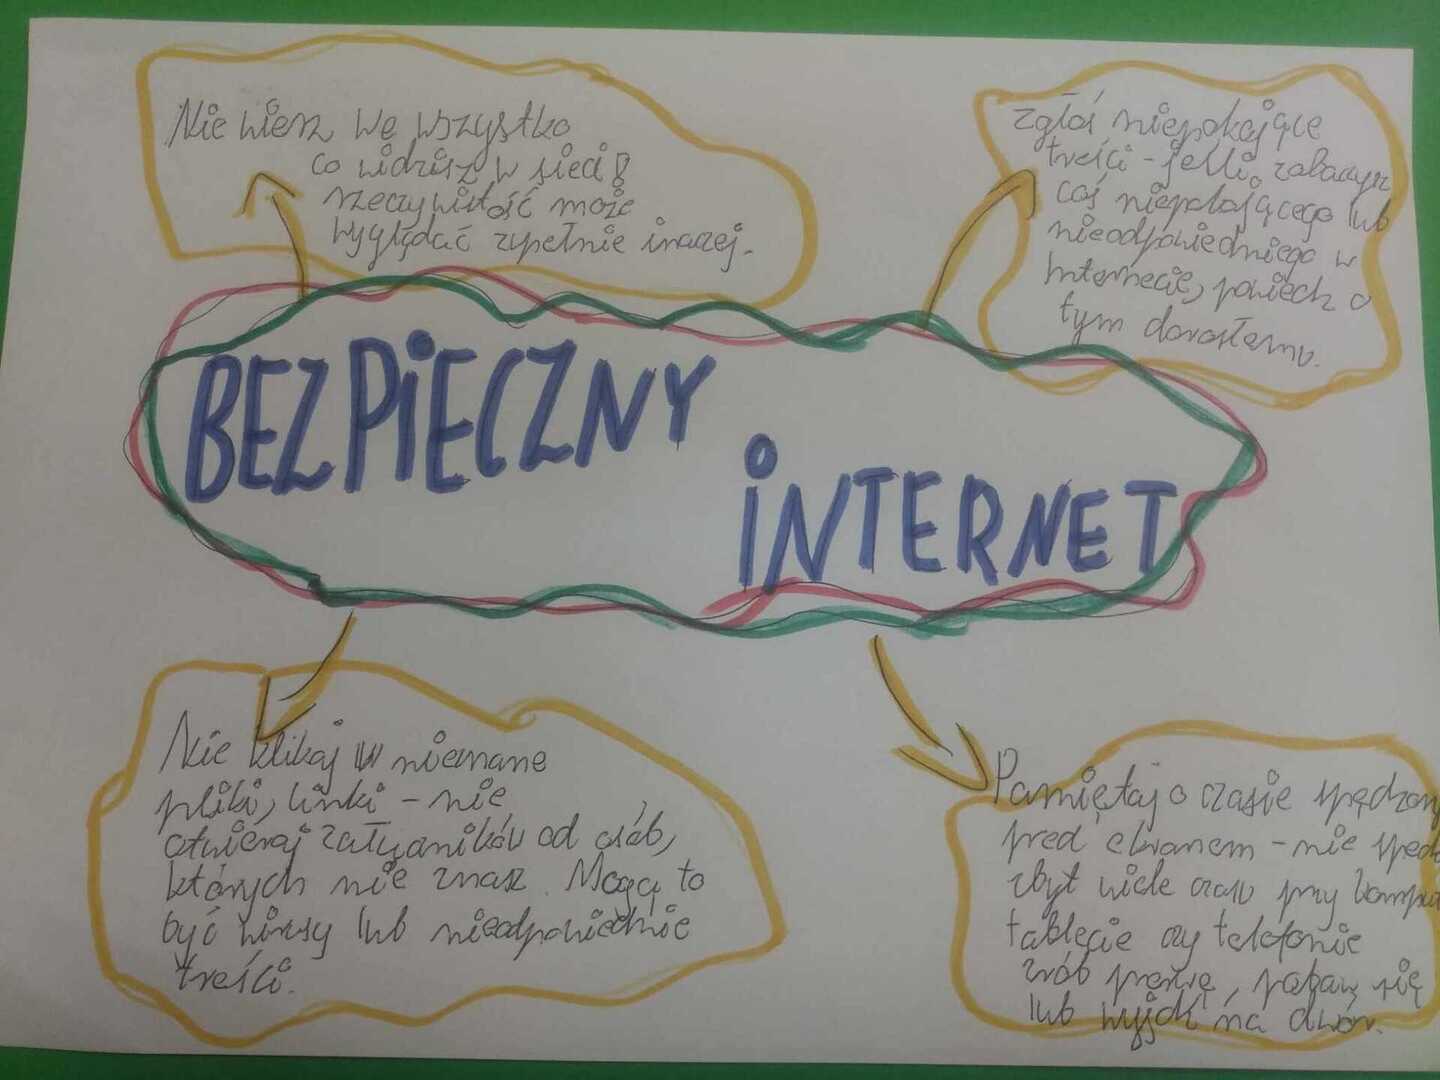 Nie wierz we wszystko
co widzisz w sieci!
rzeczywistość może
wyglądać zupełnie inaczej.
zgłoś niepokojące
treści - jeśli zobaczysz
coś niepokojącego lub
nieodpowiedniego w
Internecie, powiedz o
tym dorosłemu.
BEZPIECZNY
INTERNET
Nie klikaj w nieznane
pliki, linki - nie
otwieraj załączników od osób,
których nie znasz. Mogą to
być wirusy lub nieodpowiednie
treści.
Pamiętaj o czasie spędzony
przed ekranem - nie spędz
zbyt wiele czasu przy komput
tablecie czy telefonie
zrób przerwę, pobaw się
lub wyjdź na dwór.